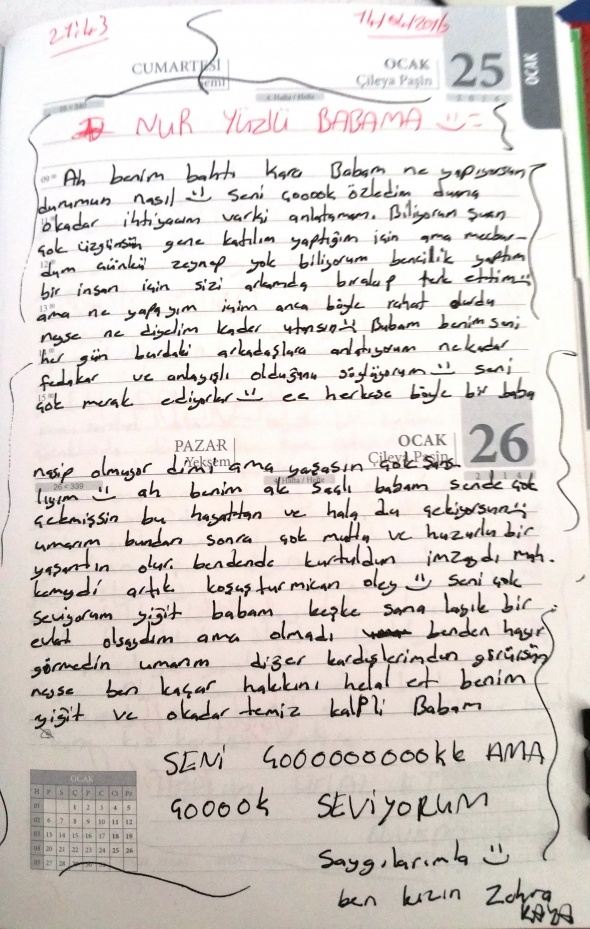 21:43 14/04/2016
CUMARTESİ OCAK 25 OCAK
Şemî Çileya Paşîn 2014
25 • 340 4. Hafta / Hefte
NUR YÜZLÜ BABAMA
09 Ah benim bahtı kara Babam ne yapıyorsun?
durumun nasıl seni çooook özledim duana
okadar ihtiyacım varki anlatamam. Biliyorum şuan
çok üzgünsün gene katılım yaptığım için ama mecbur-
dum çünkü zeynep yok biliyorum bencilik yaptım
bir insan için sizi arkamda bırakıp terk ettim
ama ne yapayım içim anca böyle rahat durdu
neyse ne diyelim kader utansın Babam benim seni
her gün burdaki arkadaşlara anlatıyorum nekadar
fedakar ve anlayışlı olduğunu söylüyorum seni
çok merak ediyorlar ee herkese böyle bir baba
PAZAR OCAK 26
Yekşem Çileya Paşîn 2014
26 • 339 4. Hafta / Hefte
nasip olmuyor dimi ama yaşasın çok şans-
lıyım ah benim ak saçlı babam sende çok
çekmişsin bu hayattan ve hala da çekiyorsun
umarım bundan sonra çok mutlu ve huzurlu bir
yaşantın olur. bendende kurtuldun imzaydı mah.
kemeydi artık koşuşturmican oley seni çok
seviyorum yiğit babam keşke sana layık bir
evlat olsaydım ama olmadı benden hayır
görmedin umarım diğer kardişlerimden görürsün
neyse ben kaçar hakkını helal et benim
yiğit ve okadar temiz kalpli Babam
SENİ ÇOOOOOOOOOOkk AMA
ÇOOOOk SEVİYORUM
Saygılarımla
ben kızın Zohra
KAYA
OCAK
H P S Ç P C Ct Pz
01 1 2 3 4 5
02 6 7 8 9 10 11 12
03 13 14 15 16 17 18 19
04 20 21 22 23 24 25 26
05 27 28 29 30 31